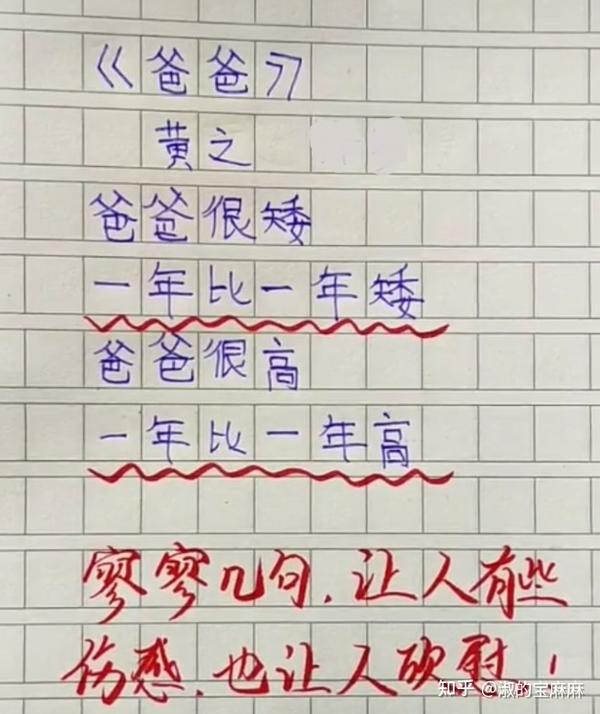 《爸爸》
黄之
爸爸很矮
一年比一年矮
爸爸很高
一年比一年高
寥寥几句,让人有些
伤感,也让人欣慰!
知乎 @淑的宝麻麻